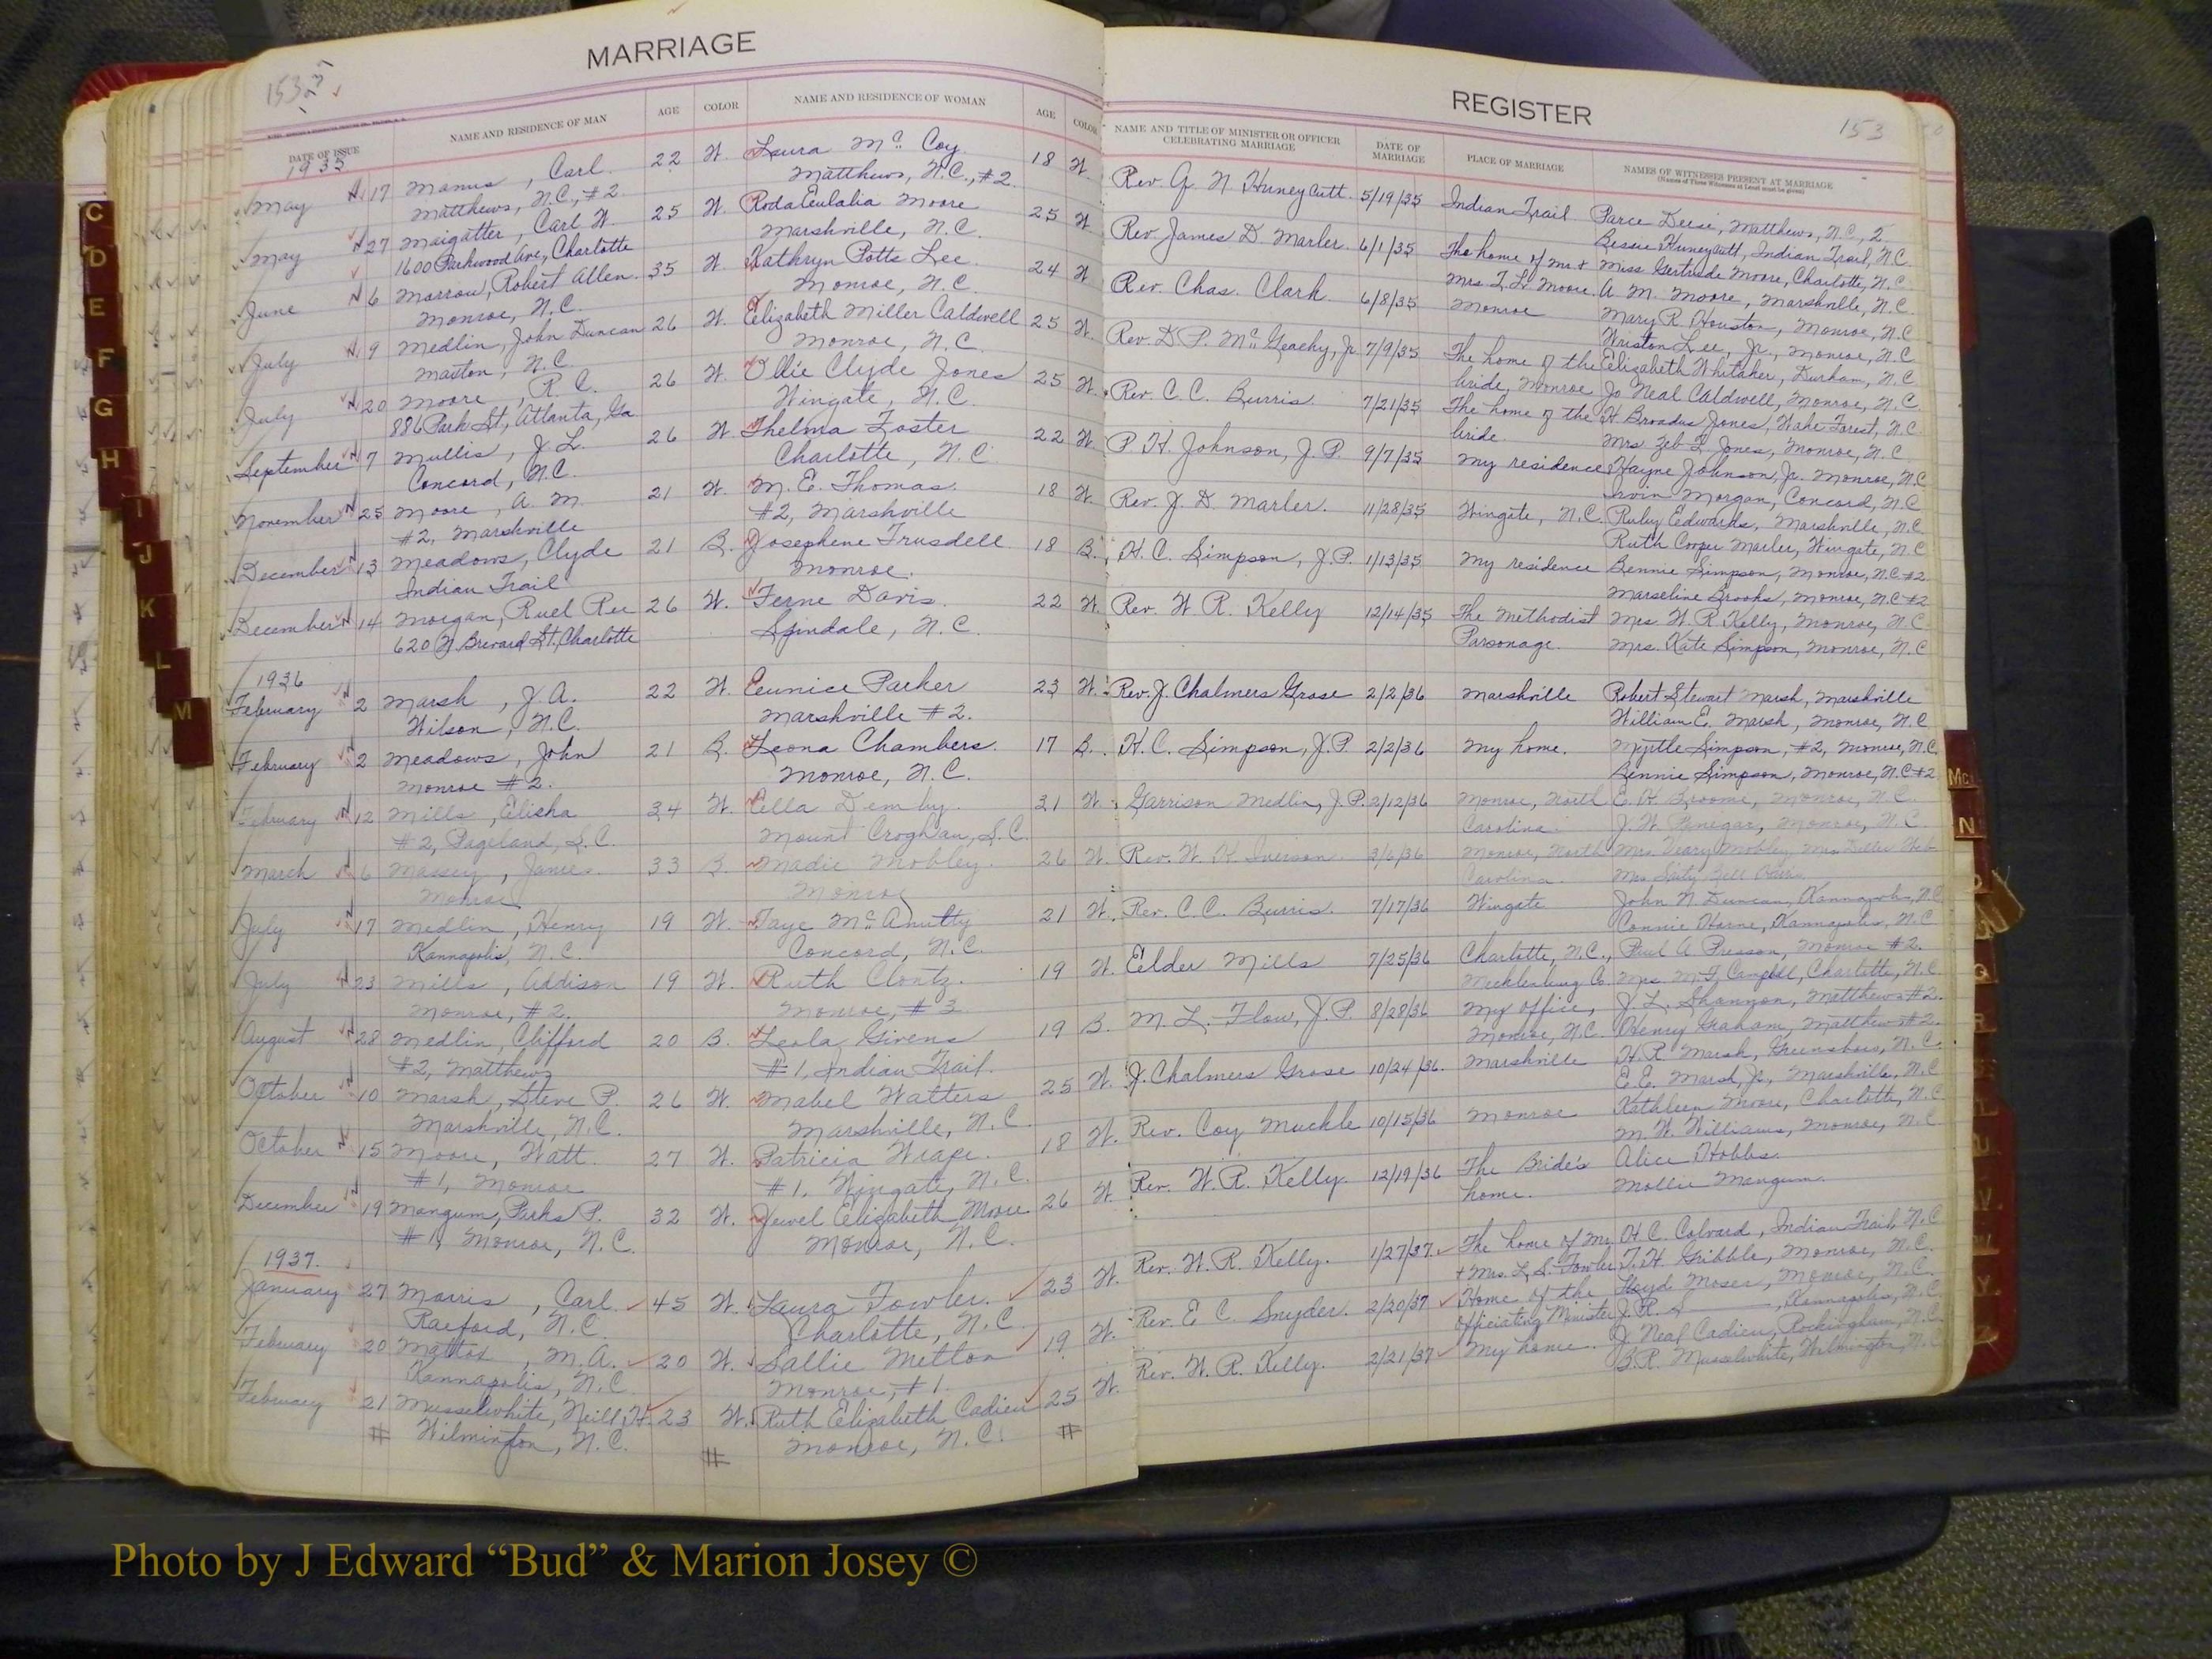 MARRIAGE
153
NAME AND RESIDENCE OF MAN AGE COLOR NAME AND RESIDENCE OF WOMAN AGE COLOR
DATE OF ISSUE
1935
May 17 Manus, Carl 22 W. Laura McCoy 18 W.
Matthews, N.C., #2 Matthews, N.C., #2
May 27 Maigatter, Carl W. 25 W. Roda Eulalia Moore 25 W.
1600 Parkwood Ave, Charlotte Marshville, N.C.
June 6 Marrow, Robert Allen 35 W. Kathryn Potts Lee 24 W
Monroe, N.C. Monroe, N.C.
July 9 Medlin, John Duncan 26 W. Elizabeth Miller Caldwell 25 W.
Maxton, N.C. Monroe, N.C.
July 20 Moore, R.C. 26 W. Ollie Clyde Jones 25 W.
886 Park St, Atlanta, Ga Wingate, N.C.
September 7 Mullis, J.L. 26 W. Thelma Foster 22 W.
Concord, N.C. Charlotte, N.C.
November 25 Moore, A.M. 21 W. M.E. Thomas 18 W.
#2, Marshville #2, Marshville
December 13 Meadows, Clyde 21 B. Josephene Trusdell 18 B.
Indian Trail Monroe.
December 14 Morgan, Ruel Ree 26 W. Ferne Davis 22 W.
620 N Brevard St, Charlotte Spindale, N.C.
1936
February 2 Marsh, J.A. 22 W. Eunice Parker 23 W.
Wilson, N.C. Marshville #2.
February 2 Meadows, John 21 B. Leona Chambers. 17 B.
Monroe #2. Monroe, N.C.
February 12 Mills, Elisha 34 W. Ella Demby 31 W.
#2, Pageland, S.C. Mount Croghan, S.C.
March 6 Massey, James 33 B. Madie Mobley 26
Monroe Monroe
July 17 Medlin, Henry 19 W. Faye 21 W.
Kannapolis, N.C. Concord, N.C.
July 23 Mills, Addison 19 W. Ruth Clontz. 19 W.
Monroe, #2. Monroe, #3
August 28 Medlin, Clifford 20 B. Leola Givens 19 B.
#2, Matthews #1, Indian Trail.
October 10 Marsh, Steve P. 26 W. Mabel Watters 25 W.
Marshville, N.C. Marshville, N.C.
October 15 Moore, Watt. 27 W. Patricia Wrape. 18 W.
#1, Monroe #1, Wingate, N.C.
December 19 Mangum, Parks P. 32 W. Jewel Elizabeth Moore 26 W.
#1, Monroe, N.C. Monroe, N.C.
1937.
January 27 Morris, Carl 45 W. Laura Fowler. 23 W.
Raeford, N.C. Charlotte, N.C.
February 20 Mattox, M.A. 20 W. Sallie Melton 19 W.
Kannapolis, N.C. Monroe, #1.
February 21 Musselwhite, Neill H. 23 W. Ruth Elizabeth Cadieu 25 W.
# Wilmington, N.C. # Monroe, N.C. #
REGISTER
153
NAME AND TITLE OF MINISTER OR OFFICER CELEBRATING MARRIAGE DATE OF MARRIAGE PLACE OF MARRIAGE NAMES OF WITNESSES PRESENT AT MARRIAGE
(Names of Three Witnesses at Least must be given)
Rev. Huneycutt. 5/19/35 Indian Trail Parce Deese, Matthews, N.C., 2
Bessie Huneycutt, Indian Trail, N.C.
Rev. James D. Marler. 6/1/35 The home of Mr + Miss Gertrude Moore, Charlotte, N.C.
Mrs T.L. Moore. A.M. Moore, Marshville, N.C.
Rev. Chas. Clark. 6/8/35 Monroe Mary R. Houston, Monroe, N.C
Wriston Lee, Jr., Monroe, N.C
Rev. D.P. McGeachy, Jr. 7/9/35 The home of the Elizabeth Whitaker, Durham, N.C
bride, Monroe Jo Neal Caldwell, Monroe, N.C.
Rev. C.C. Burris. 7/21/35 The home of the H. Broadus Jones, Wake Forest, N.C.
bride. Mrs. Zeb Jones, Monroe, N.C.
P.H. Johnson, J.P. 9/7/35 My residence Hayne Johnson, Jr. Monroe, N.C
Irvin Morgan, Concord, N.C
Rev. J.D. Marler. 11/28/35 Wingate, N.C. Ruby Edwards, Marshville, N.C
Ruth Cooper Marler, Wingate, N.C
H.C. Simpson, J.P. 1/13/35 My residence Bennie Simpson, Monroe, N.C. #2
Marseline Brooks, Monroe, N.C #2
Rev. W.R. Kelly 12/14/35 The Methodist Mrs. W.R. Kelly, Monroe, N.C
Parsonage. Mrs. Kate Simpson, Monroe, N.C
Rev. J. Chalmers Grose 2/2/36 Marshville Robert Stewart Marsh, Marshville
William E. Marsh, Monroe, N.C
H.C. Simpson, J.P. 2/2/36 My home. Myrtle Simpson, #2, Monroe, N.C.
Bennie Simpson, Monroe, N.C #2
Garrison Medlin, J.P. 2/12/36 Monroe, North E.H. Broome, Monroe, N.C.
Carolina. J.W. Monroe, N.C.
Rev. W.H. 3/6/36 Monroe, North Mrs Mobley, Mrs
Carolina. Mrs
Rev. C.C. Burris. 7/17/36 Wingate John N Duncan, Kannapolis, N.C.
Connie Horne, Kannapolis, N.C.
Elder Mills 7/25/36 Charlotte, N.C., Paul A Presson, Monroe #2.
Mecklenburg Co. Mrs. Campbell, Charlotte, N.C.
M.L. Flow, J.P. 8/28/36 My office, J.L. Shannon, Matthews #2.
Monroe, N.C. Henry Graham, Matthews #2.
J. Chalmers Grose 10/24/36. Marshville H.R. Marsh, Greensboro, N.C.
E.E. Marsh, Jr., Marshville, N.C
Rev. Coy Muckle 10/15/36 Monroe Kathleen Moore, Charlotte, N.C
M.W. Williams, Monroe, N.C.
Rev. W.R. Kelly. 12/19/36 The Bride's Alice Hobbs.
home. Mollie Mangum.
Rev. W.R. Kelly. 1/27/37. The home of Mr H.C. Colvard, Indian Trail, N.C
+ Mrs. L.S. Fowler T.H. Gribble, Monroe, N.C.
Rev. E.C. Snyder. 2/20/37 Home of the Lloyd Moser, Monroe, N.C.
Officiating Minister J.R. Kannapolis, N.C.
Rev. W.R. Kelly. 2/21/37 My home. J. Neal Cadieu, Rockingham, N.C.
B.R. Musselwhite, Wilmington, N.C.
C
D
E
F
G
H
I
J
K
L
M
Mc
N
Q
R
Photo by J Edward “Bud” & Marion Josey ©